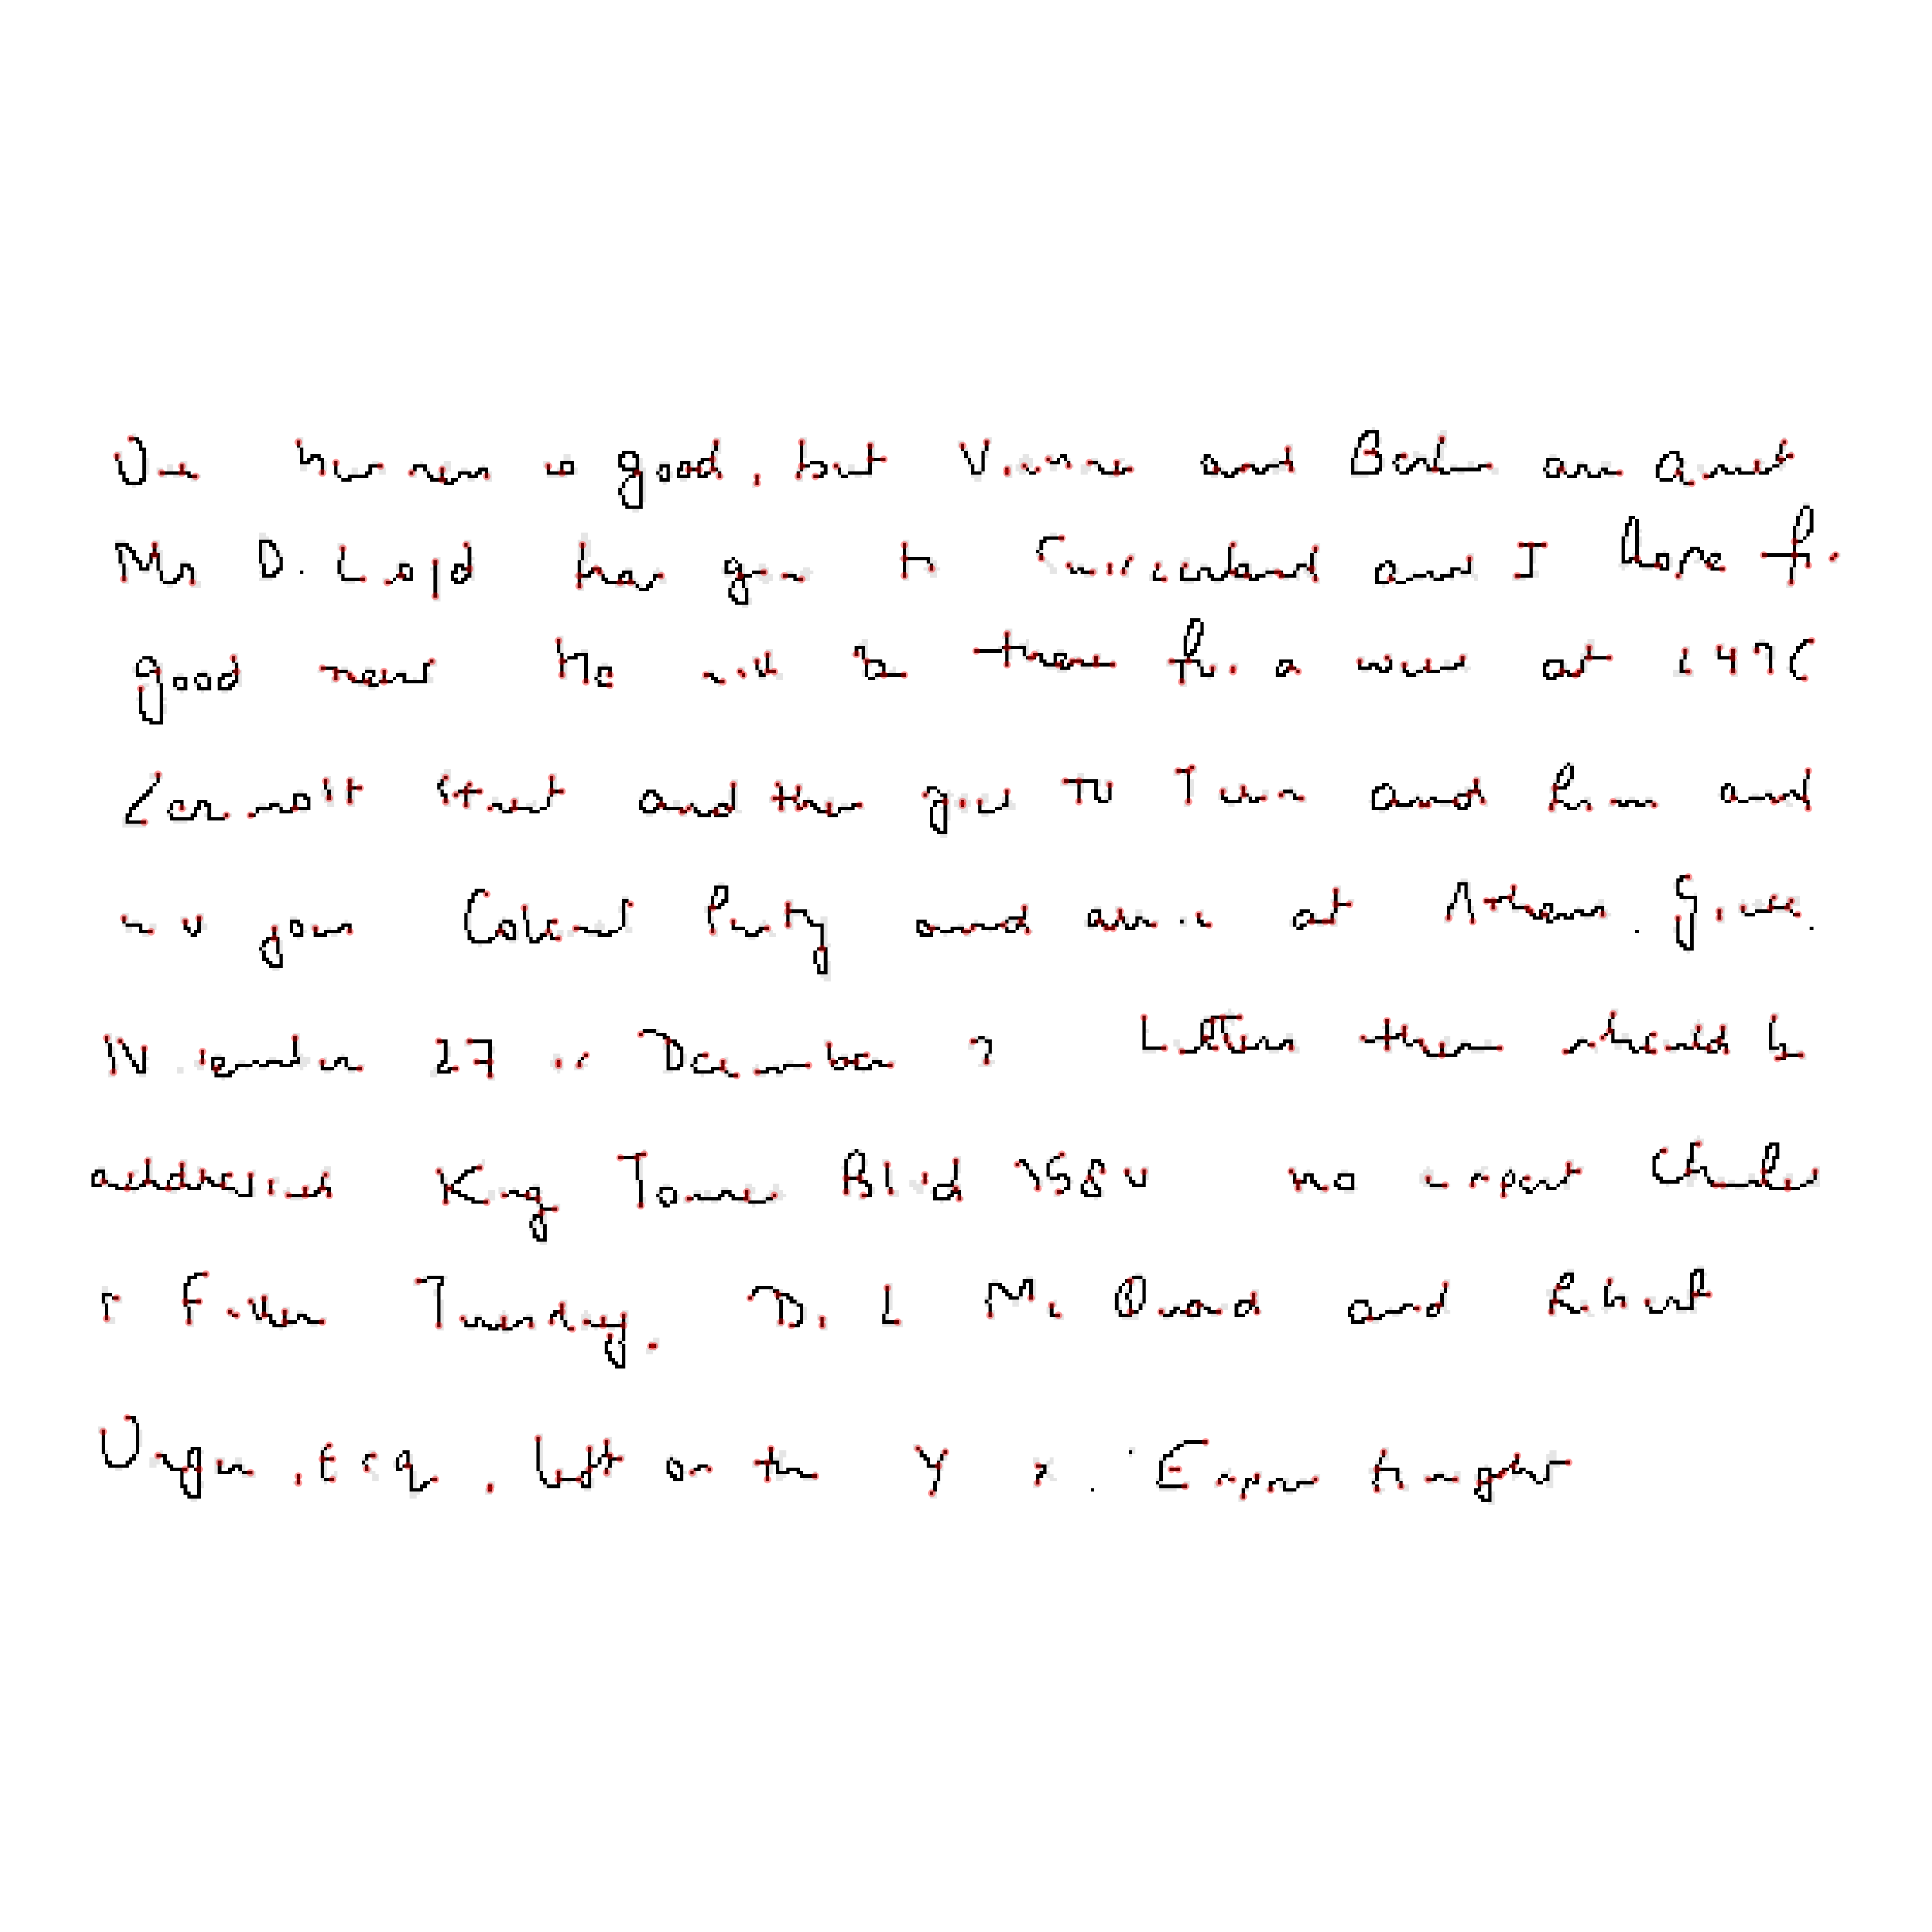 is good, but Vienna and Berlin are quiet
Mr D. Lloyd has gone to Switzerland and I hope for
good news He will be there for a week at 1496
Zermott Street and then goes to Turin and Rome and
join Colonel Parry and arrive at Athens. Greece.
November 27 or December 2 Letters there should be
addressed King James Blvd 3580 expect Charles
Fuller Tuesday. Dr. L Mc Quaid and Robert
Unger, Esq, left on the Y X. Express tonight